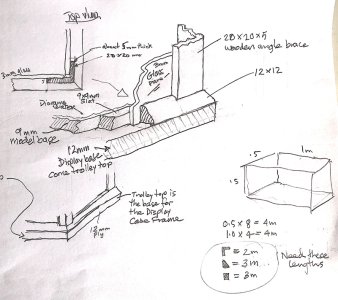 Top View
About 5mm thick
20 x 20 mm
3mm Glass
Diorama
9x9mm
Slot
9mm
model base
3mm
Glass
Pane
20 x 20 x 5
wooden angle brace
12 x 12
12mm
Display base
come trolley top
Trolley top is
the base for
the Display
Case Frame
12mm
Ply
.5
1m
.5
0.5 x 8 = 4m
1.0 x 4 = 4m
= 2m
= 3m
= 3m
Need these
lengths